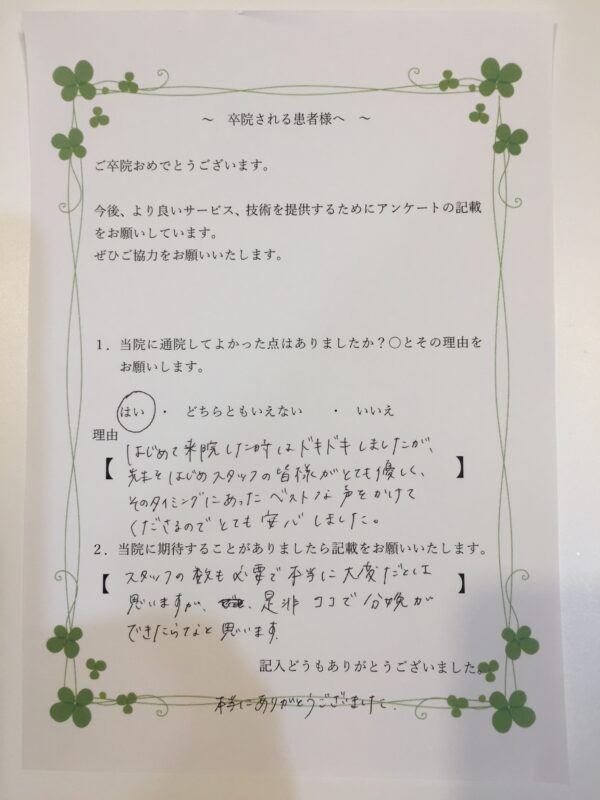 ～ 卒院される患者様へ ～
ご卒院おめでとうございます。
今後、より良いサービス、技術を提供するためにアンケートの記載
をお願いしています。
ぜひご協力をお願いいたします。
1．当院に通院してよかった点はありましたか？〇とその理由を
お願いします。
はい ・ どちらともいえない ・ いいえ
理由
【 はじめて来院した時はドキドキしましたが、
先生をはじめスタッフの皆様がとても優しく、 】
そのタイミングにあったベストな声をかけて
くださるのでとても安心しました。
2．当院に期待することがありましたら記載をお願いいたします。
【 スタッフの数も必要で本当に大変だとは 】
思いますが、是非ココで分娩が
できたらなと思います
記入どうもありがとうございました。
本当にありがとうございました.